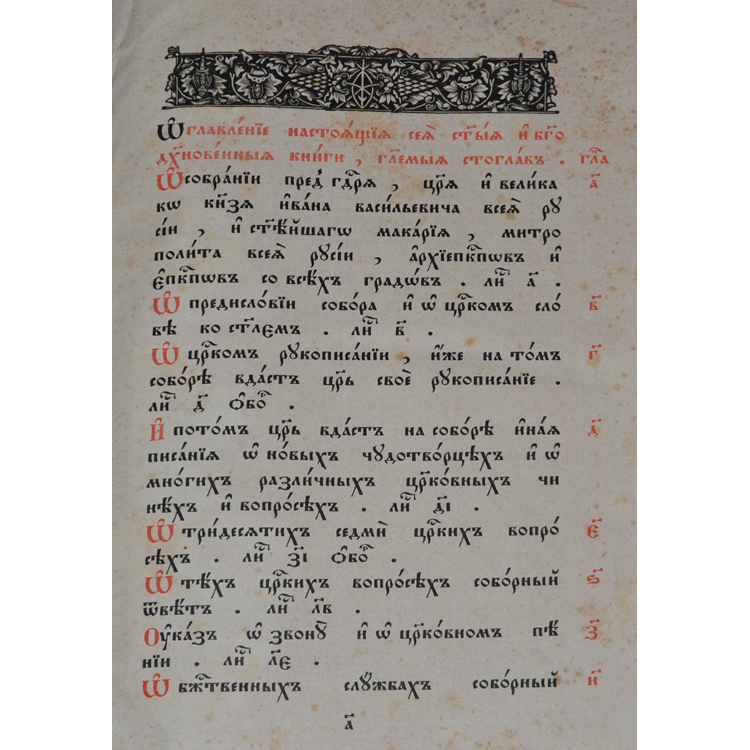 Ѡ҆главле́нїе настоѧ́щїѧ сеѧ̀ ст҃ы́ѧ и҆ бг҃о
дх҃нове́нныѧ кни́ги, гл҃емыѧ стогла́въ. гла̑
Ѡ҆ собра́нїи пред̾ гдⷭ҇рѧ, цр҃ѧ и҆ вели́ка а҃
кѡ кн҃зѧ и҆ва́на васи́льевича всеѧ̀ рꙋ
сі́и, и҆ ст҃ѣ́йшагѡ мака́рїѧ, митро
поли́та всеѧ̀ рꙋсі́и, а҆рхїепⷭ҇кпѡвъ и҆
є҆пⷭ҇кпѡвъ со всѣ́хъ градѡ́въ. ли́ⷭ҇ а҃.
Ѡ҆ предисло́вїи собо́ра и҆ ѡ҆ црⷭ҇комъ сло́ в҃
вѣ ко ст҃лемъ. ли́ⷭ҇ в҃.
Ѡ҆ црⷭ҇комъ рꙋкописа́нїи, и҆́же на то́мъ г҃
собо́рѣ вда́стъ цр҃ь своѐ рꙋкописа́нїе.
ли́ⷭ҇ д҃ ѡ҆боⷬ҇.
И҆ пото́мъ цр҃ь вда́стъ на собо́рѣ и҆на́ѧ д҃
писа́нїѧ ѡ҆ но́выхъ чꙋдотво́рцѣхъ и҆ ѡ҆
мно́гихъ разли́чныхъ цр҃ко́вныхъ чи
нѣ́хъ и҆ вопро́сѣхъ. ли́ⷭ҇ д҃і.
Ѡ҆ три́десѧтихъ седмѝ црⷭ҇кихъ вопро́ є҃
сѣхъ. ли́ⷭ҇ з҃і ѡ҆боⷬ҇.
Ѡ҆ тѣ́хъ црⷭ҇кихъ вопро́сѣхъ собо́рный ѕ҃
ѿвѣ́тъ. ли́ⷭ҇ л҃в.
Оу҆ка́зъ ѡ҆ звонꙋ̀ и҆ ѡ҆ цр҃ко́вномъ пѣ́ з҃
нїи. ли́ⷭ҇ л҃є.
Ѡ҆ бжⷭ҇твенныхъ слꙋ́жбахъ собо́рный и҃
а҃